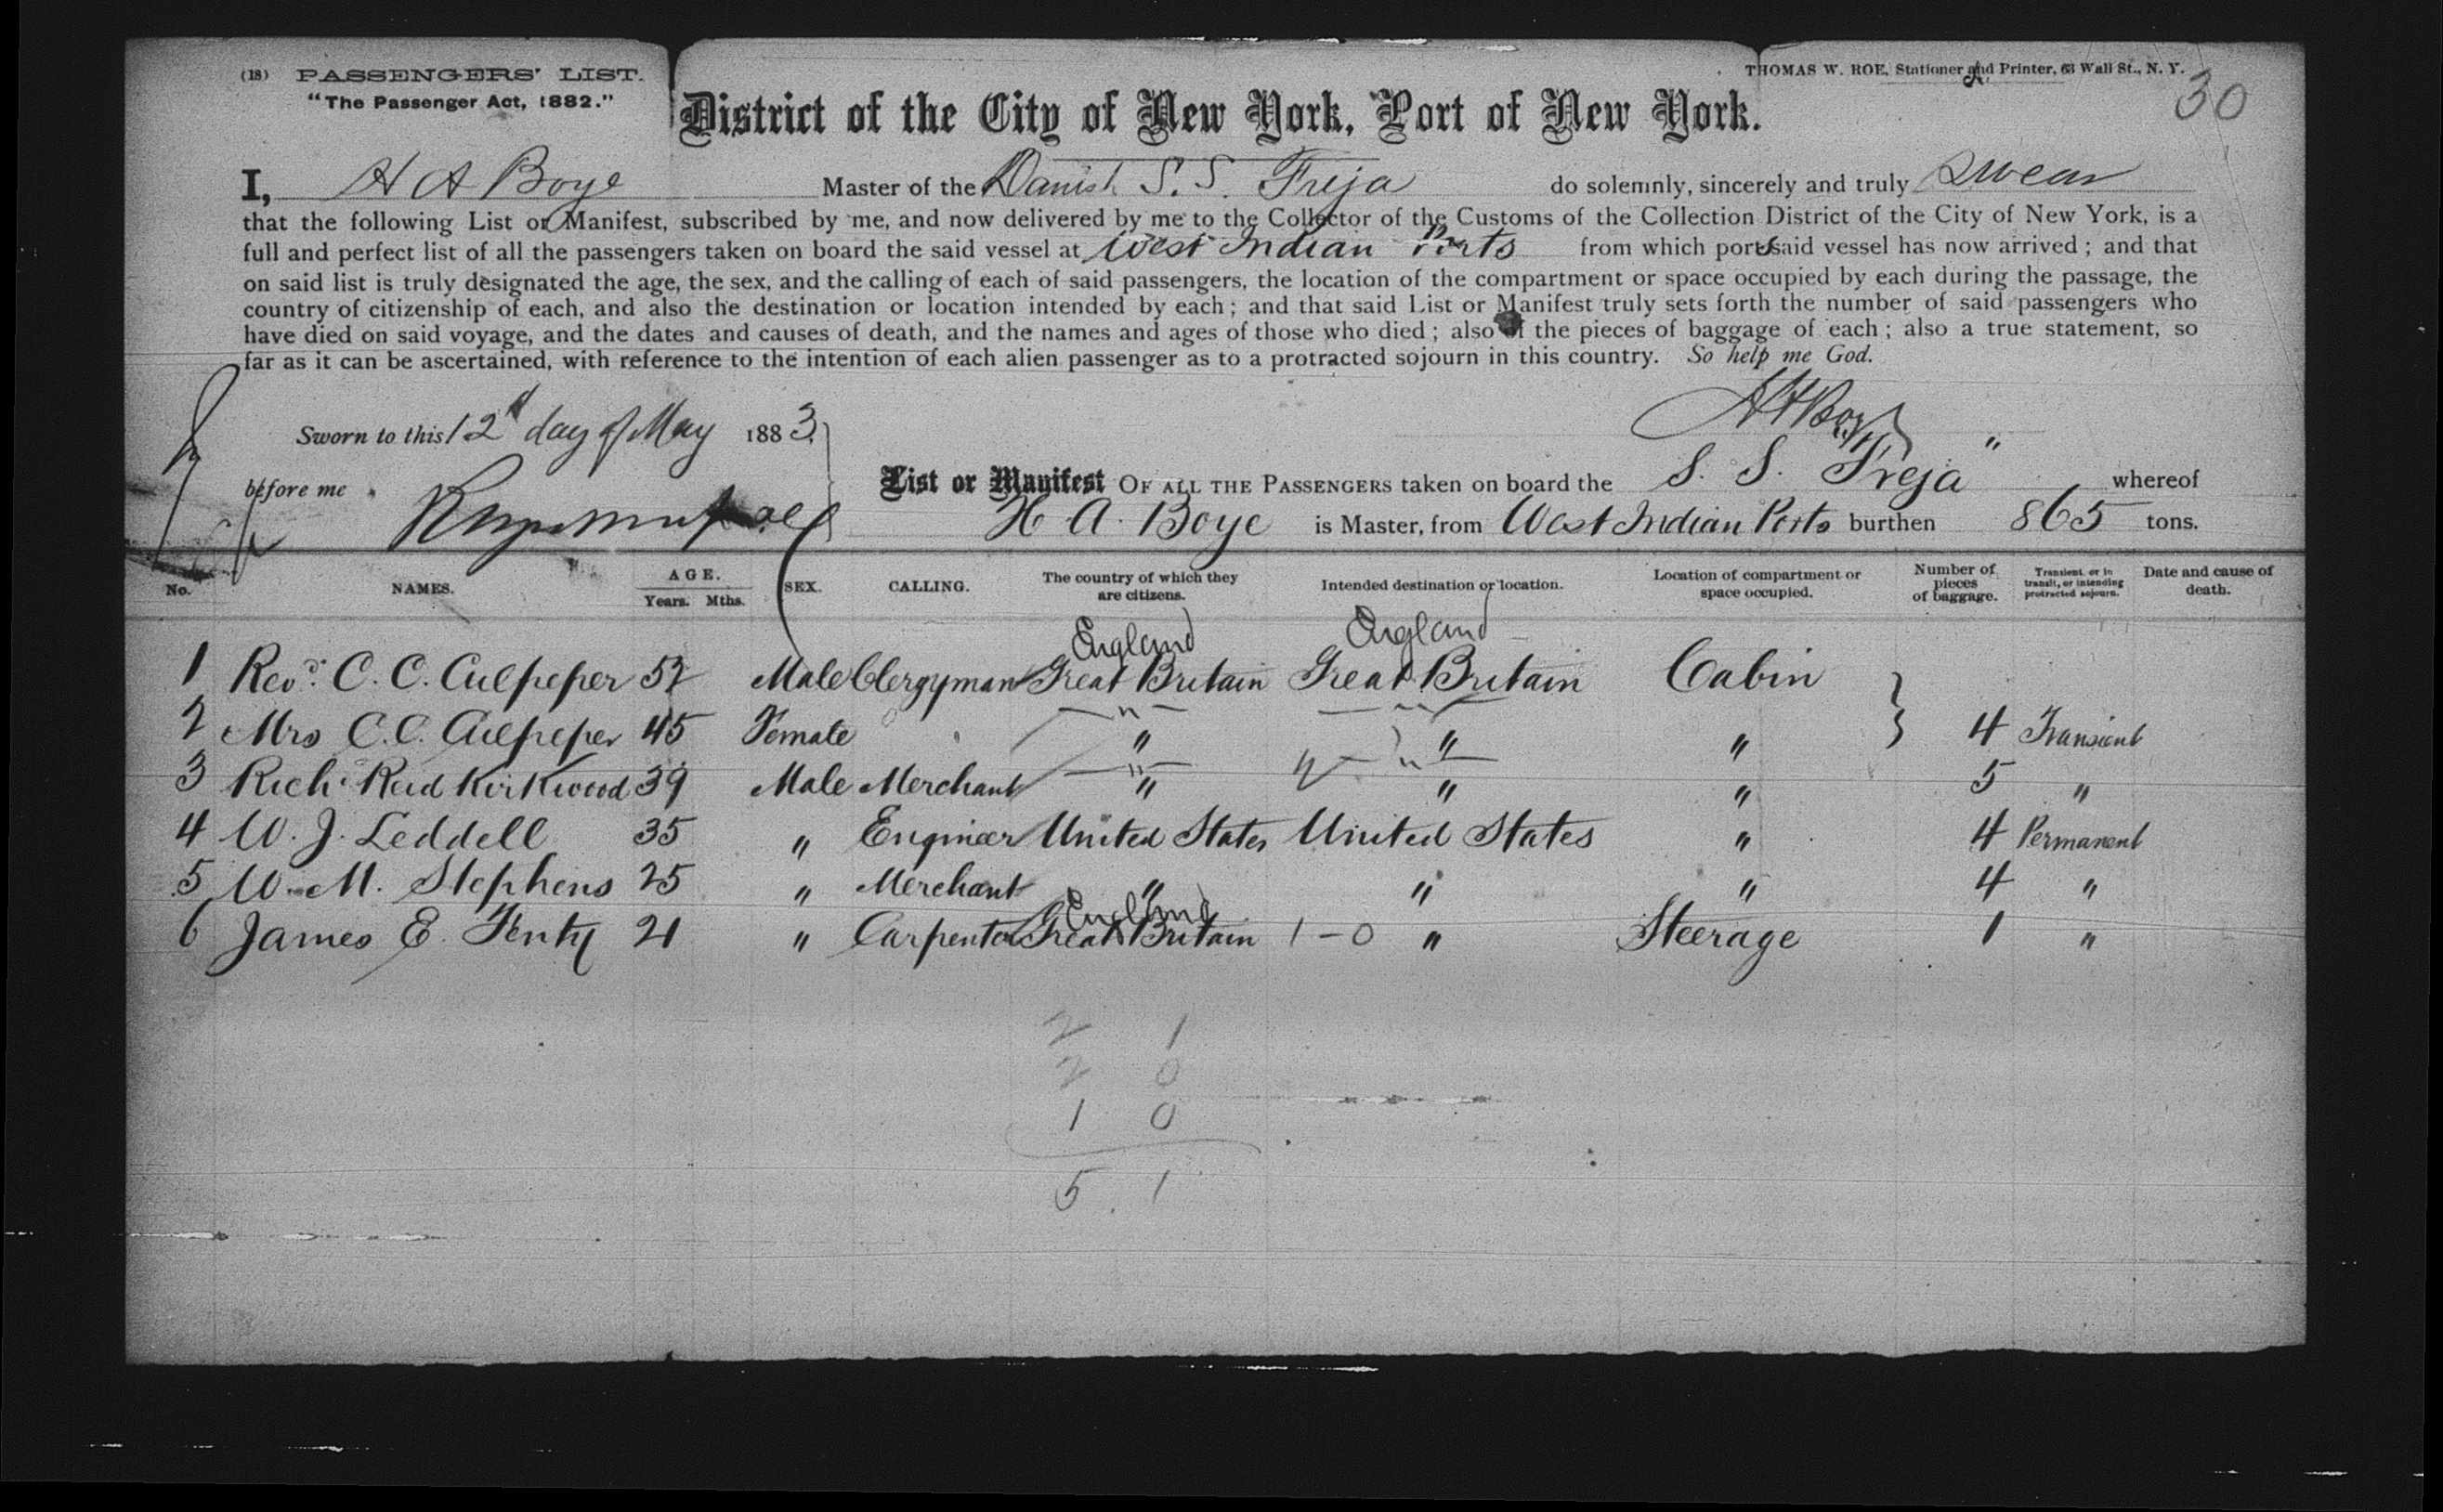 (18) PASSENGERS' LIST.
"The Passenger Act, 1882."
THOMAS W. ROE, Stationer and Printer, 63 Wall St., N. Y.
30
District of the City of New York, Port of New York.
I, H A Boye Master of the Danish S. S. Freja do solemnly, sincerely and truly swear
that the following List or Manifest, subscribed by me, and now delivered by me to the Collector of the Customs of the Collection District of the City of New York, is a
full and perfect list of all the passengers taken on board the said vessel at West Indian Ports from which ports said vessel has now arrived; and that
on said list is truly designated the age, the sex, and the calling of each of said passengers, the location of the compartment or space occupied by each during the passage, the
country of citizenship of each, and also the destination or location intended by each; and that said List or Manifest truly sets forth the number of said passengers who
have died on said voyage, and the dates and causes of death, and the names and ages of those who died; also of the pieces of baggage of each; also a true statement, so
far as it can be ascertained, with reference to the intention of each alien passenger as to a protracted sojourn in this country. So help me God.
Sworn to this 12d day of May 1883.
H A Boye
before me
List or Manifest OF ALL THE PASSENGERS taken on board the S. S. "Freja" whereof
H A. Boye is Master, from West Indian Ports burthen 865 tons.
No. NAMES. AGE. Years. Mths. SEX. CALLING. The country of which they are citizens. Intended destination or location. Location of compartment or space occupied. Number of pieces of baggage. Transient, or in transit, or intending protracted sojourn. Date and cause of death.
England England
1 Revd. C. C. Culpeper 52 Male Clergyman Great Britain Great Britain Cabin
2 Mrs C. C. Culpeper 45 Female " " " 4 Transient
3 Rich. Reid Kirkwood 39 Male Merchant " " " 5 "
4 W. J. Leddell 35 " Engineer United States United States " 4 Permanent
5 W. M. Stephens 25 " Merchant " " " 4 "
England
6 James E. Fenty 21 " Carpenter Great Britain 1 - 0 " Steerage 1 "
2 1
2 0
1 0
5 1